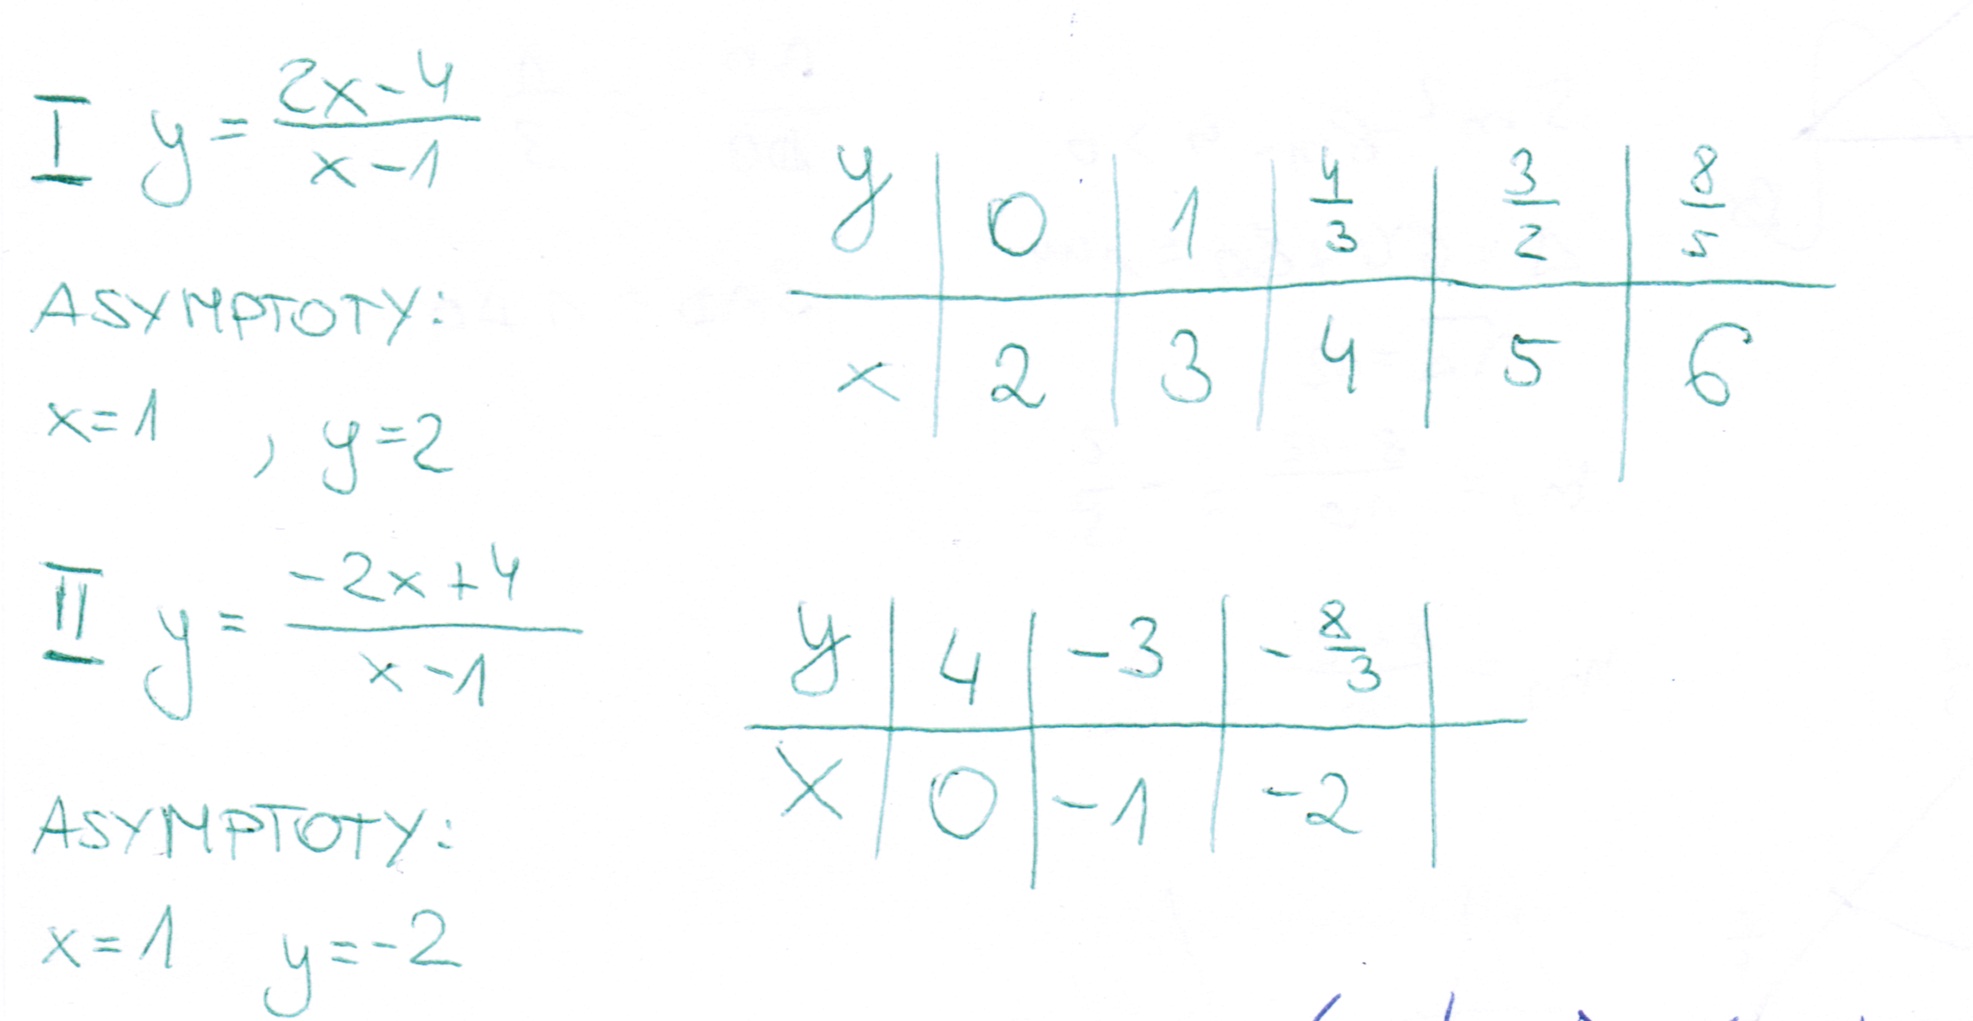 I y = (2x-4)/(x-1)
y | 0 | 1 | 4/3 | 3/2 | 8/5
x | 2 | 3 | 4 | 5 | 6
ASYMPTOTY:
x=1 , y=2
II y = (-2x+4)/(x-1)
y | 4 | -3 | -8/3 |
x | 0 | -1 | -2 |
ASYMPTOTY:
x=1 y=-2